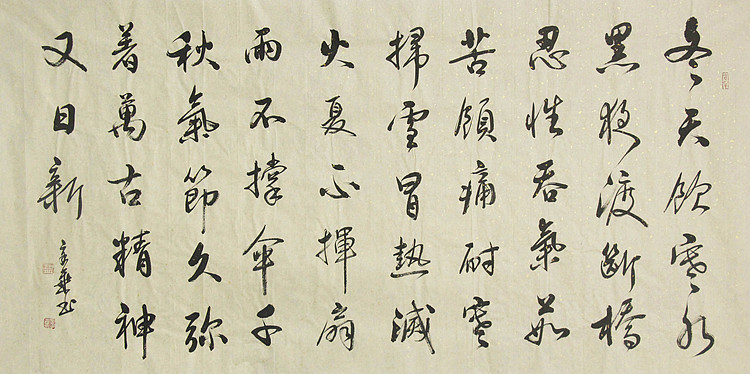 冬天飲寒水
黑夜渡斷橋
忍性吞氣茹
苦領痛耐寒
掃雪冒熱滅
火夏不揮扇
雨不撐傘千
秋氣節久弥
著萬古精神
又日新